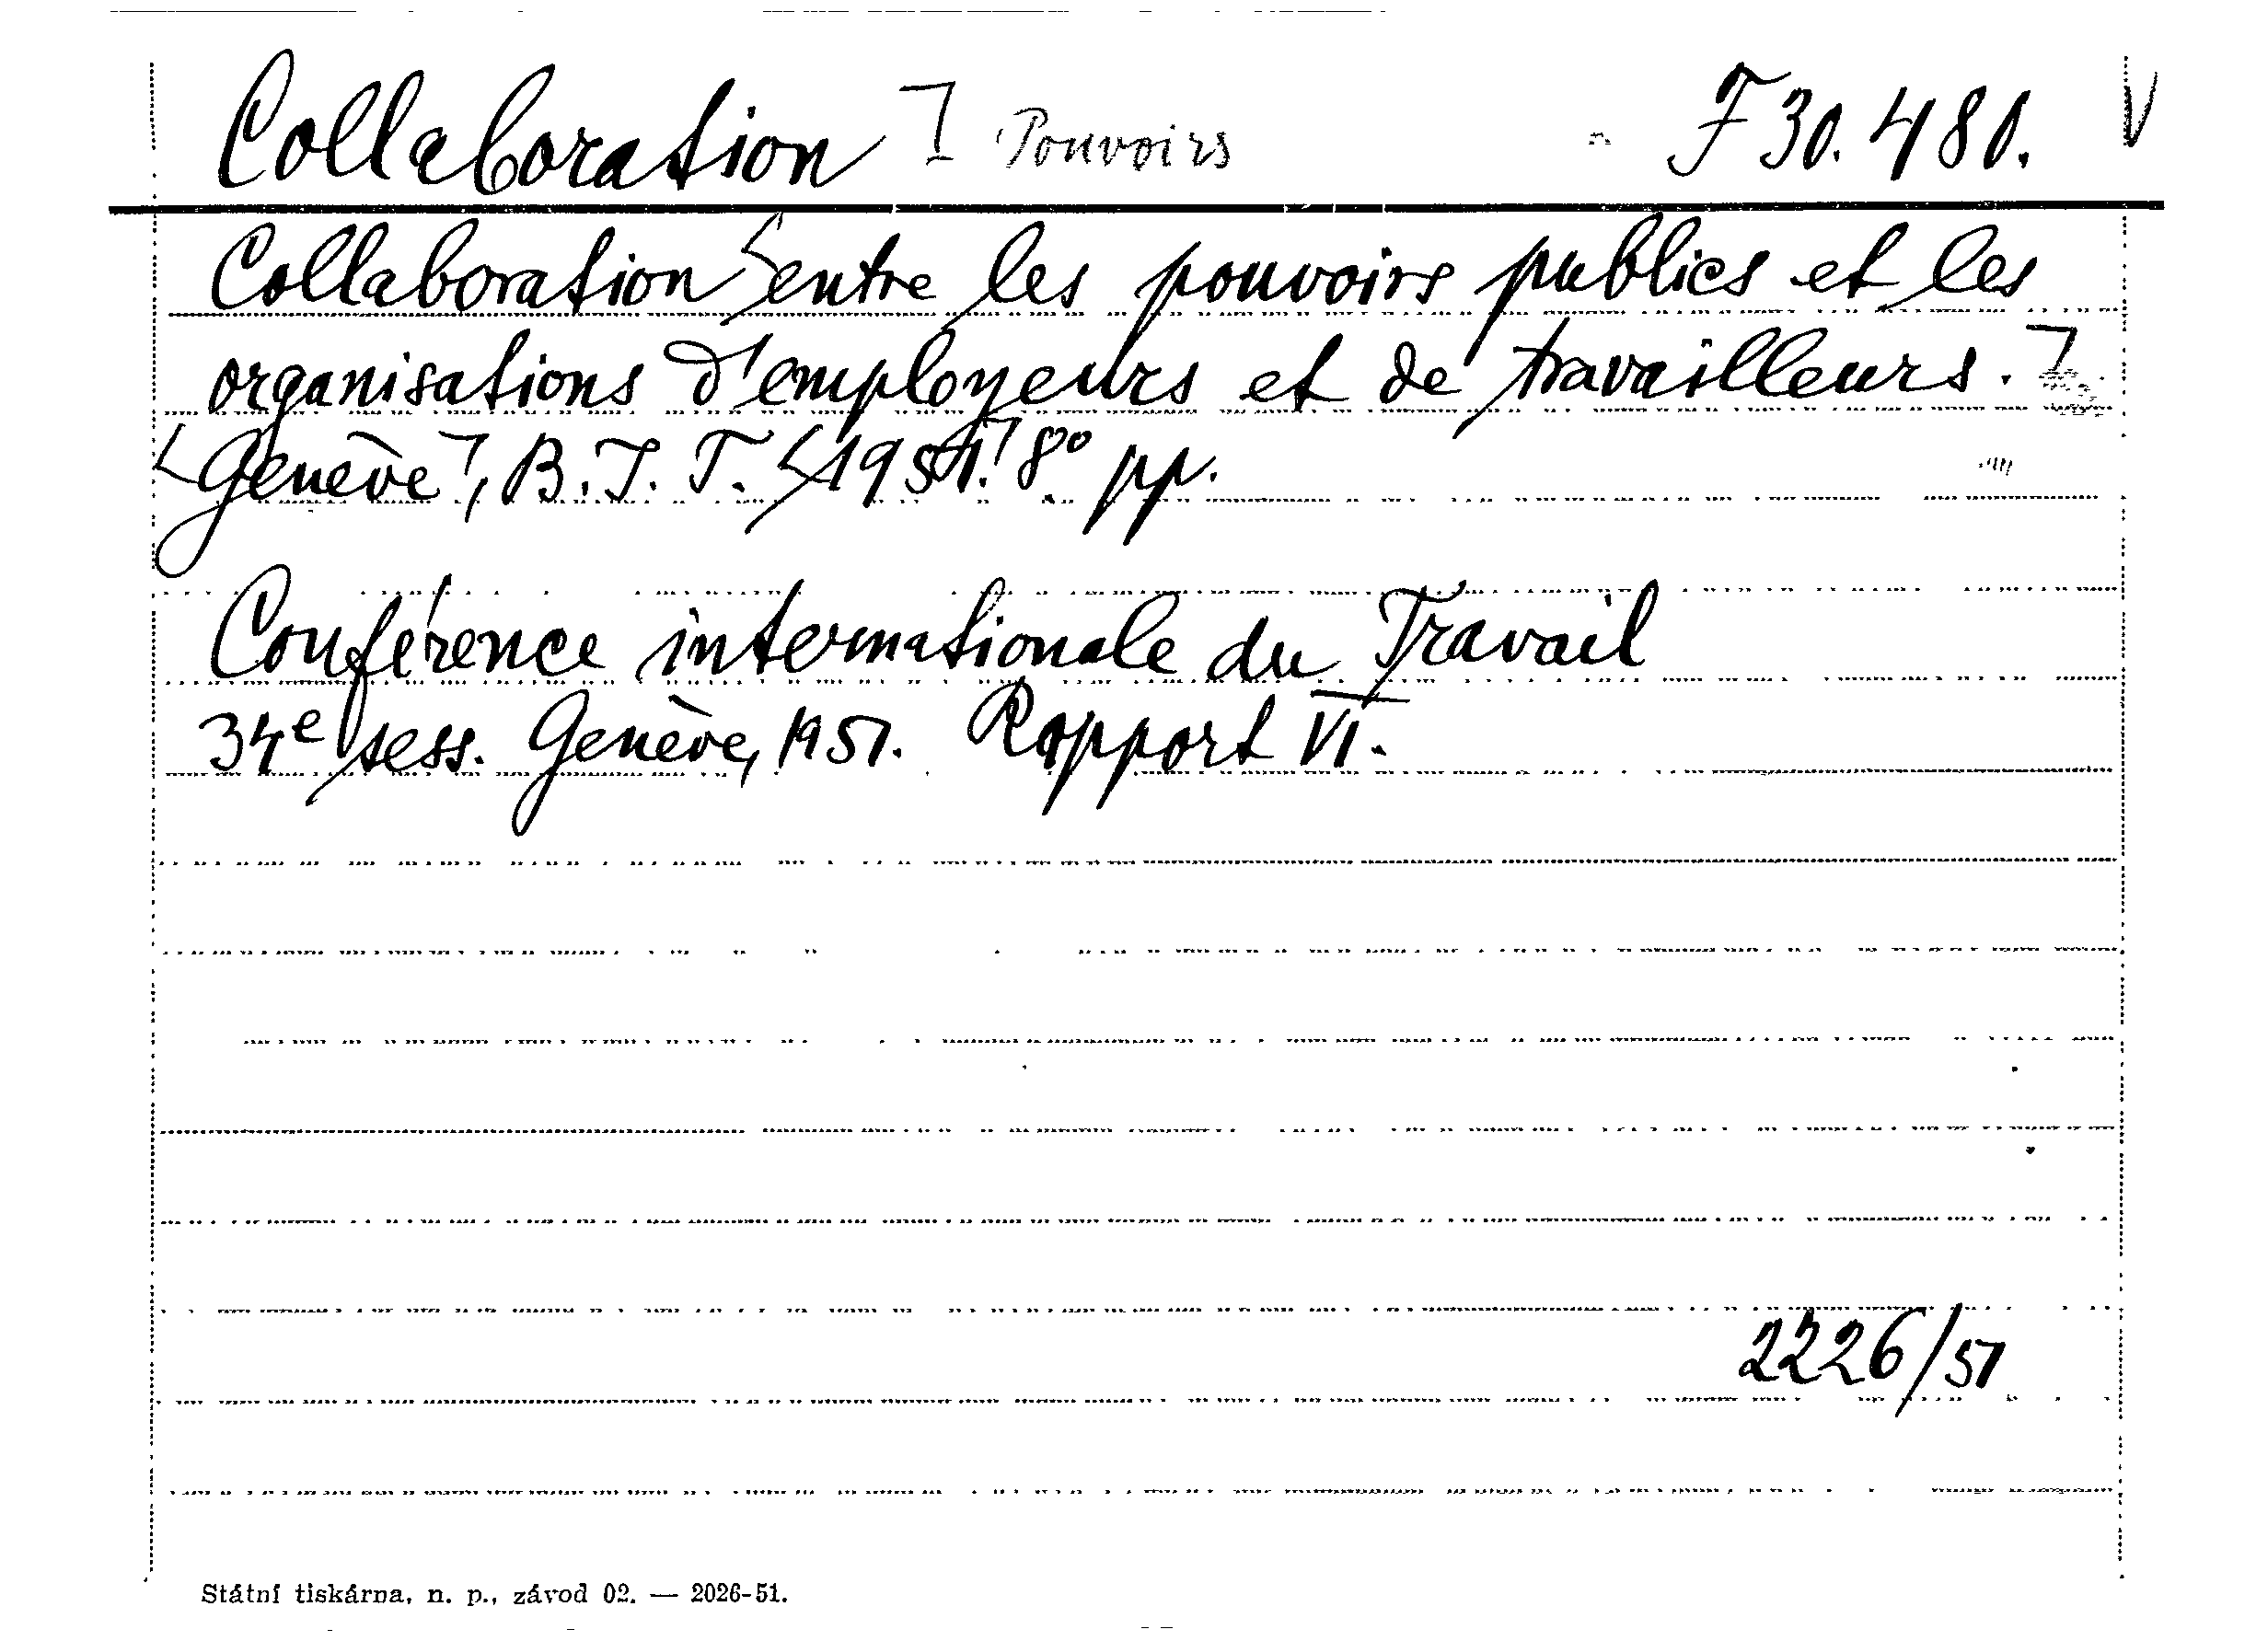 Collaboration Pouvoirs F 30.480. V
Collaboration entre les pouvoirs publics et les
organisations d'employeurs et de travailleurs.
Genève, B.I.T. 1951. 8° pp.
Conférence internationale du Travail
34e sess. Genève, 1951. Rapport VI.
2226/51
Státní tiskárna, n. p., závod 02. — 2026-51.